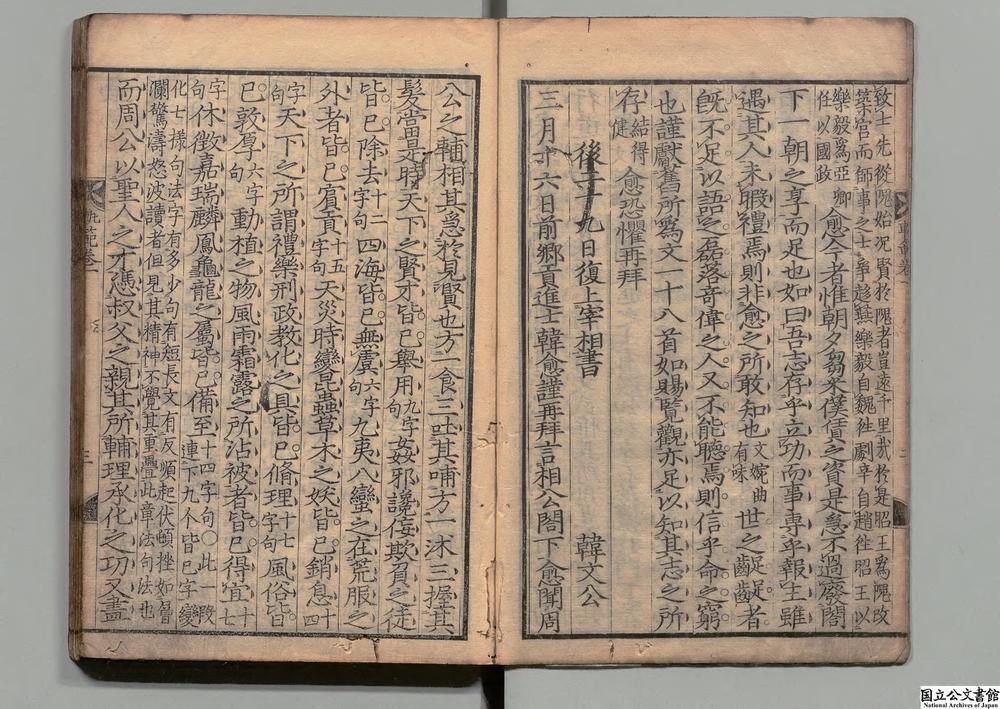 致士先從隗始况賢於隗者豈遠千里哉於是昭王爲隗改
築宮而師事之士爭趨燕樂毅自魏徃劇辛自趙徃昭王以
樂毅爲亞卿
任以國政
愈今者惟朝夕芻米僕賃之資是急不過廢閤
下一朝之享而足也如曰吾志存乎立功而事專乎報主雖
遇其人未暇禮焉則非愈之所敢知也文婉曲有味世之齪齪者
旣不足以語之磊落竒偉之人又不能聽焉則信乎命之窮
也謹獻舊所爲文一十八首如賜覽觀亦足以知其志之所
存結得健愈恐懼再拜
後二十九日復上宰相書 韓文公
三月十六日前鄉貢進士韓愈謹再拜言相公閤下愈聞周
公之輔相其急於見賢也方一食三吐其哺方一沐三握其
髮當是時天下之賢才皆已舉用九字句姦邪讒佞欺負之徒
皆已除去十二字句四海皆已無虞六字句九夷八蠻之在荒服之
外者皆已賓貢十五字句天災時變昆蟲草木之妖皆已銷息十四
字句天下之所謂禮樂刑政教化之具皆已脩理十七字句風俗皆
已敦厚六字句動植之物風雨霜露之所沾被者皆已得宜十七
字句休徵嘉瑞麟鳳龜龍之屬皆已備至十四字句○此一段連下九个皆已字變
化七樣句法字有多少句有短長文有反順起伏頓挫如層
瀾驚濤怒波讀者但見其精神不覺其重疊此章法句法也
而周公以聖人之才憑叔父之親其所輔理承化之功又盡
国立公文書館
National Archives of Japan